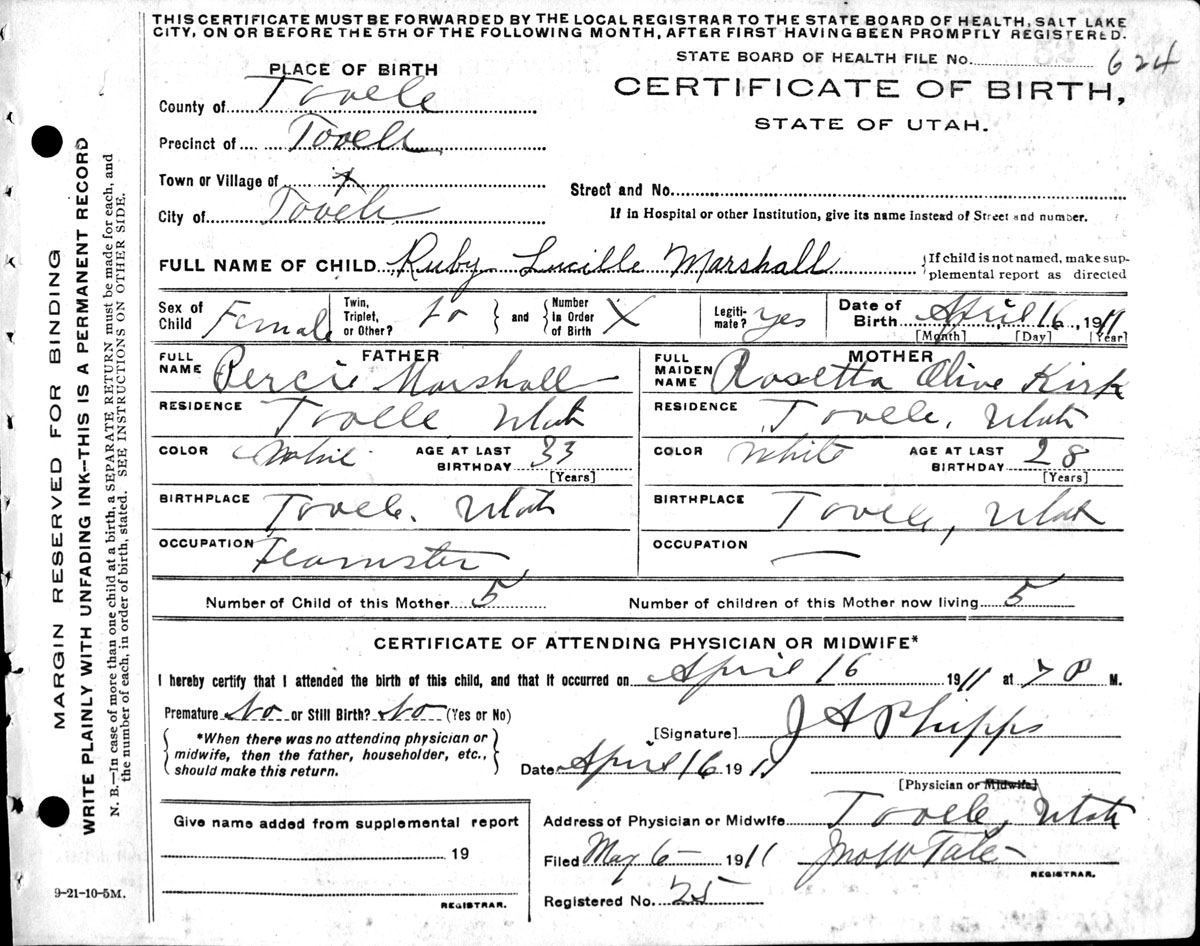 THIS CERTIFICATE MUST BE FORWARDED BY THE LOCAL REGISTRAR TO THE STATE BOARD OF HEALTH, SALT LAKE
CITY, ON OR BEFORE THE 5TH OF THE FOLLOWING MONTH, AFTER FIRST HAVING BEEN PROMPTLY REGISTERED.
STATE BOARD OF HEALTH FILE No. 624
PLACE OF BIRTH
CERTIFICATE OF BIRTH,
STATE OF UTAH.
County of Tooele
Precinct of Tooele
Town or Village of X
Street and No.
City of Tooele
If in Hospital or other Institution, give its name instead of Street and number.
FULL NAME OF CHILD Ruby Lucille Marshall {If child is not named, make sup-
plemental report as directed
Sex of Child Female Twin, Triplet, or Other? and Number in Order of Birth X Legiti-mate? yes Date of Birth April 16, 1911
[Month] [Day] [Year]
FATHER MOTHER
FULL NAME Percie Marshall FULL MAIDEN NAME Rosetta Olive Kirk
RESIDENCE Tooele Utah RESIDENCE Tooele, Utah
COLOR White AGE AT LAST BIRTHDAY 33 [Years] COLOR White AGE AT LAST BIRTHDAY 28 [Years]
BIRTHPLACE Tooele, Utah BIRTHPLACE Tooele, Utah
OCCUPATION Teamster OCCUPATION —
Number of Child of this Mother 5 Number of children of this Mother now living 5
CERTIFICATE OF ATTENDING PHYSICIAN OR MIDWIFE*
I hereby certify that I attended the birth of this child, and that it occurred on April 16 1911 at 7 P M.
Premature No or Still Birth? No (Yes or No)
[Signature] J A Phipps
*When there was no attending physician or
midwife, then the father, householder, etc.,
should make this return.
Date April 16 1911
[Physician or Midwife]
Give name added from supplemental report
19
REGISTRAR.
Address of Physician or Midwife Tooele, Utah
Filed May 6 1911 Jno W Tate
REGISTRAR.
Registered No. 25
9-21-10-5M.
MARGIN RESERVED FOR BINDING
WRITE PLAINLY WITH UNFADING INK—THIS IS A PERMANENT RECORD
N. B.—In case of more than one child at a birth, a SEPARATE RETURN must be made for each, and
the number of each, in order of birth, stated. SEE INSTRUCTIONS ON OTHER SIDE.